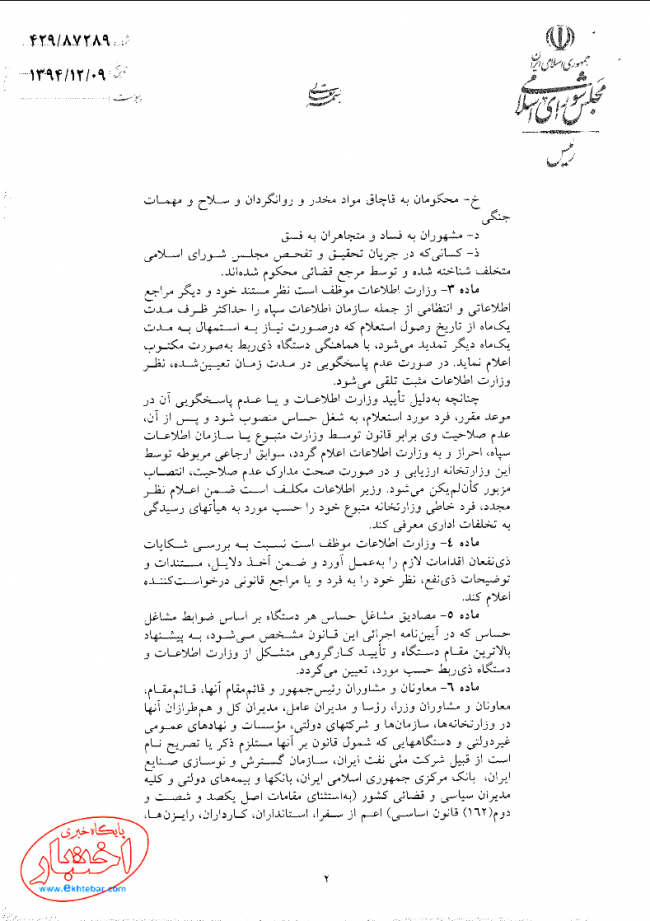 شماره ۴۲۹/۸۷۲۸۹
تاریخ ۱۳۹۴/۱۲/۰۹
پیوست
جمهوری اسلامی ایران
مجلس شورای اسلامی
رئیس
بسمه تعالی
خ- محکومان به قاچاق مواد مخدر و روانگردان و سلاح و مهمات
جنگی
د- مشهوران به فساد و متجاهران به فسق
ذ- کسانی‌که در جریان تحقیق و تفحص مجلس شورای اسلامی
متخلف شناخته شده و توسط مرجع قضائی محکوم شده‌اند.
ماده ۳- وزارت اطلاعات موظف است نظر مستند خود و دیگر مراجع
اطلاعاتی و انتظامی از جمله سازمان اطلاعات سپاه را حداکثر ظرف مدت
یک‌ماه از تاریخ وصول استعلام که درصورت نیاز به استمهال به مدت
یک‌ماه دیگر تمدید می‌شود، با هماهنگی دستگاه ذی‌ربط به‌صورت مکتوب
اعلام نماید. در صورت عدم پاسخگویی در مدت زمان تعیین‌شده، نظر
وزارت اطلاعات مثبت تلقی می‌شود.
چنانچه به‌دلیل تأیید وزارت اطلاعات و یا عدم پاسخگویی آن در
موعد مقرر، فرد مورد استعلام، به شغل حساس منصوب شود و پس از آن،
عدم صلاحیت وی برابر قانون توسط وزارت متبوع یا سازمان اطلاعات
سپاه، احراز و به وزارت اطلاعات اعلام گردد، سوابق ارجاعی مربوطه توسط
این وزارتخانه ارزیابی و در صورت صحت مدارک عدم صلاحیت، انتصاب
مزبور کأن‌لم‌یکن می‌شود. وزیر اطلاعات مکلف است ضمن اعلام نظر
مجدد، فرد خاطی وزارتخانه متبوع خود را حسب مورد به هیأتهای رسیدگی
به تخلفات اداری معرفی کند.
ماده ۴- وزارت اطلاعات موظف است نسبت به بررسی شکایات
ذی‌نفعان اقدامات لازم را به‌عمل آورد و ضمن أخذ دلایل، مستندات و
توضیحات ذی‌نفع، نظر خود را به فرد و یا مراجع قانونی درخواست‌کننده
اعلام کند.
ماده ۵- مصادیق مشاغل حساس هر دستگاه بر اساس ضوابط مشاغل
حساس که در آیین‌نامه اجرائی این قانون مشخص می‌شود، به پیشنهاد
بالاترین مقام دستگاه و تأیید کارگروهی متشکل از وزارت اطلاعات و
دستگاه ذی‌ربط حسب مورد، تعیین می‌گردد.
ماده ۶- معاونان و مشاوران رئیس‌جمهور و قائم‌مقام آنها، قائم‌مقام،
معاونان و مشاوران وزرا، رؤسا و مدیران عامل، مدیران کل و هم‌طرازان آنها
در وزارتخانه‌ها، سازمان‌ها و شرکتهای دولتی، مؤسسات و نهادهای عمومی
غیردولتی و دستگاههایی که شمول قانون بر آنها مستلزم ذکر یا تصریح نام
است از قبیل شرکت ملی نفت ایران، سازمان گسترش و نوسازی صنایع
ایران، بانک مرکزی جمهوری اسلامی ایران، بانکها و بیمه‌های دولتی و کلیه
مدیران سیاسی و قضائی کشور (به‌استثنای مقامات اصل یکصد و شصت و
دوم(۱۶۲) قانون اساسی) اعم از سفرا، استانداران، کارداران، رایزن‌ها،
۲
پایگاه خبری
اختبار
www.ekhtebar.com